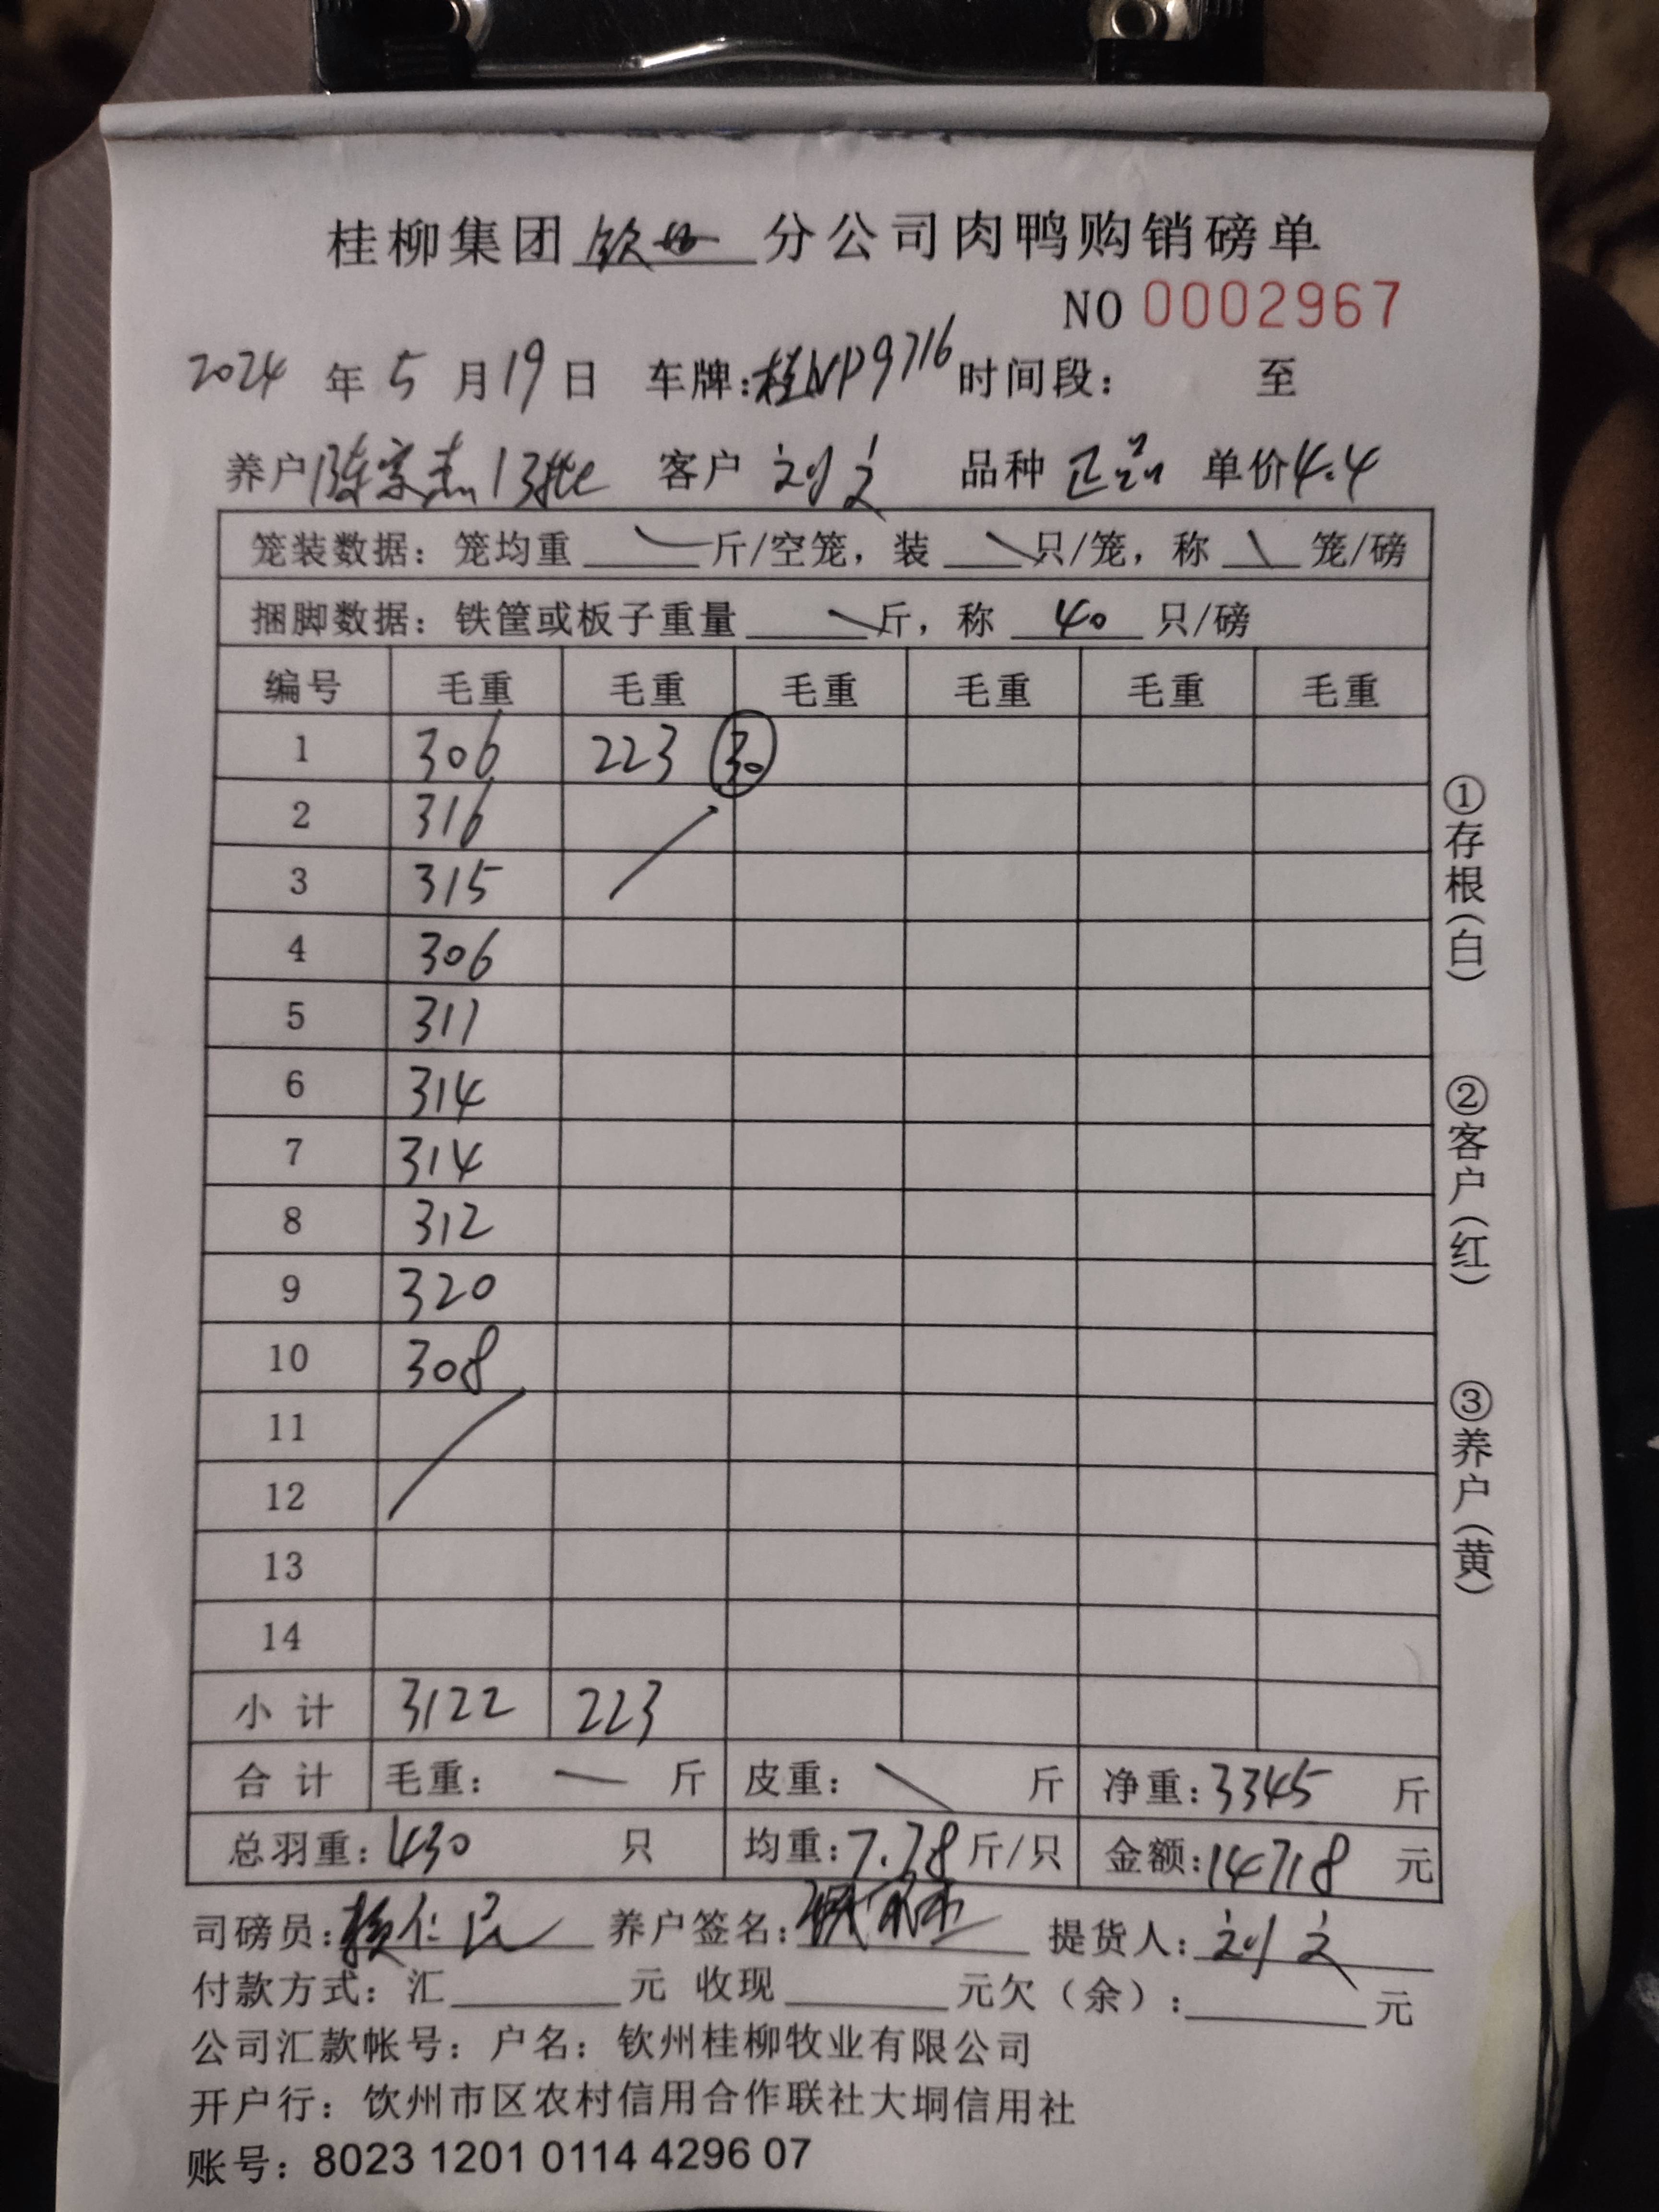 桂柳集团钦州分公司肉鸭购销磅单
NO 0002967
2024 年 5 月 19 日 车牌:桂NP9716 时间段: 至
养户 陈家杰13批 客户 刘文 品种 正品 单价4.4
笼装数据: 笼均重 斤/空笼, 装 只/笼, 称 笼/磅
捆脚数据: 铁筐或板子重量 斤, 称 40 只/磅
编号 毛重 毛重 毛重 毛重 毛重 毛重
1 306 223 30
2 316
3 315
4 306
5 311
6 314
7 314
8 312
9 320
10 308
11
12
13
14
小计 3122 223
合计 毛重: 斤 皮重: 斤 净重:3345 斤
总羽重:430 只 均重:7.78 斤/只 金额:14718 元
司磅员: 养户签名: 提货人:刘文
付款方式: 汇 元 收现 元欠(余): 元
公司汇款帐号: 户名: 钦州桂柳牧业有限公司
开户行: 钦州市区农村信用合作联社大垌信用社
账号: 8023 1201 0114 4296 07
①存根(白)
②客户(红)
③养户(黄)